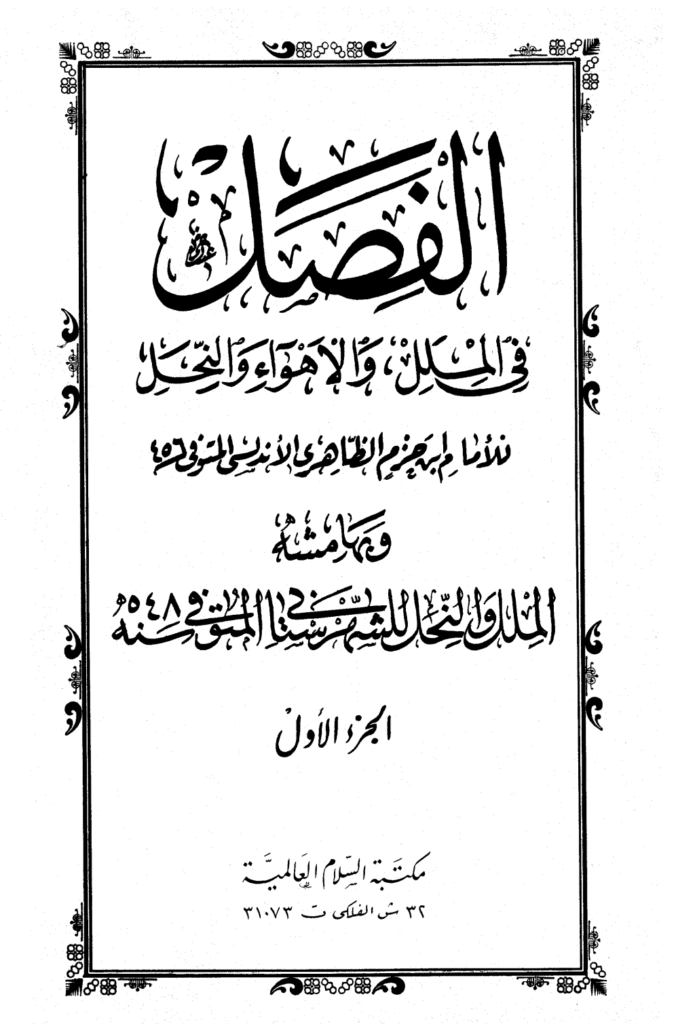 الفِصَل
فِي المِلَلِ، وَالأَهْوَآءِ وَالنِّحَلِ
للأمام ابن حزم الظاهرى الأندلسى المتوفى ٤٥٦
وبهامشه
الملل والنحل للشهرستانى المتوفى سنه ٥٤٨ ه
الجزء الأول
مكتبة السلام العالمية
٣٢ ش الفلكى ت ٣١٠٧٣